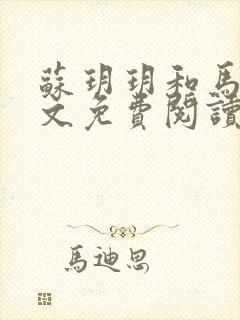 蘇玥玥和馬
文免費閱讀
馬迪思